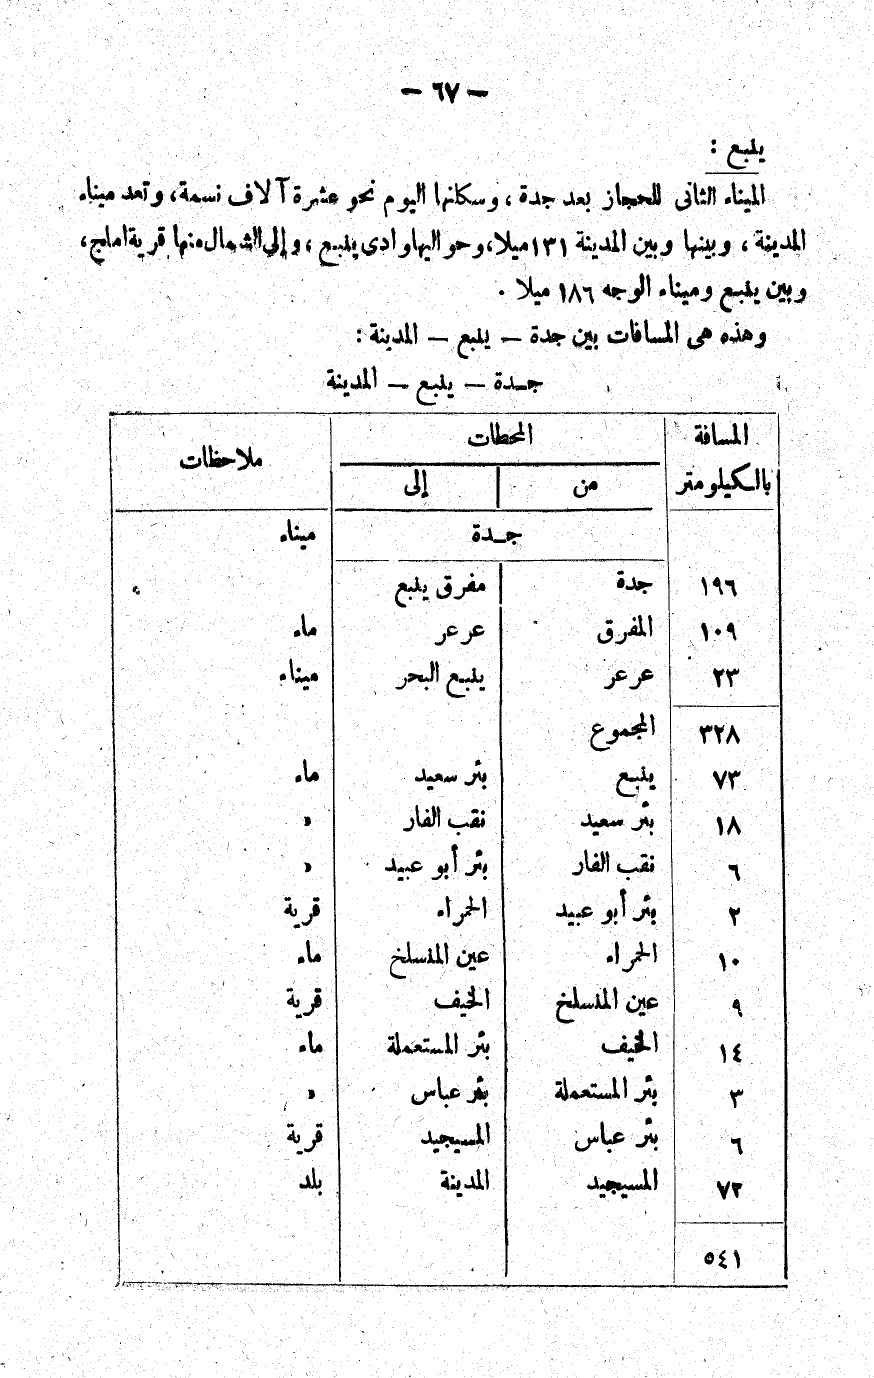 — ٦٧ —
ينبع :
الميناء الثانى للحجاز بعد جدة ، وسكانها اليوم نحو عشرة آلاف نسمة، وتعد ميناء
المدينة ، وبينها وبين المدينة ١٣١ ميلا، وحواليها وادى ينبع ، وإلى الشمال منها قرية املج،
وبين ينبع وميناء الوجه ١٨٦ ميلا .
وهذه هى المسافات بين جدة — ينبع — المدينة :
جــدة — ينبع — المدينة
المسافة بالكيلومتر | المحطات | ملاحظات
من | إلى
جــدة | ميناء
١٩٦ | جدة | مفرق ينبع
١٠٩ | المفرق | عرعر | ماء
٢٣ | عرعر | ينبع البحر | ميناء
٣٢٨ | المجموع
٧٣ | ينبع | بئر سعيد | ماء
١٨ | بئر سعيد | نقب الفار | »
٦ | نقب الفار | بئر أبو عبيد | »
٢ | بئر أبو عبيد | الحمراء | قرية
١٠ | الحمراء | عين المنسلخ | ماء
٩ | عين المنسلخ | الخيف | قرية
١٤ | الخيف | بئر المستعملة | ماء
٣ | بئر المستعملة | بئر عباس | »
٦ | بئر عباس | المسيجيد | قرية
٧٢ | المسيجيد | المدينة | بلد
٥٤١